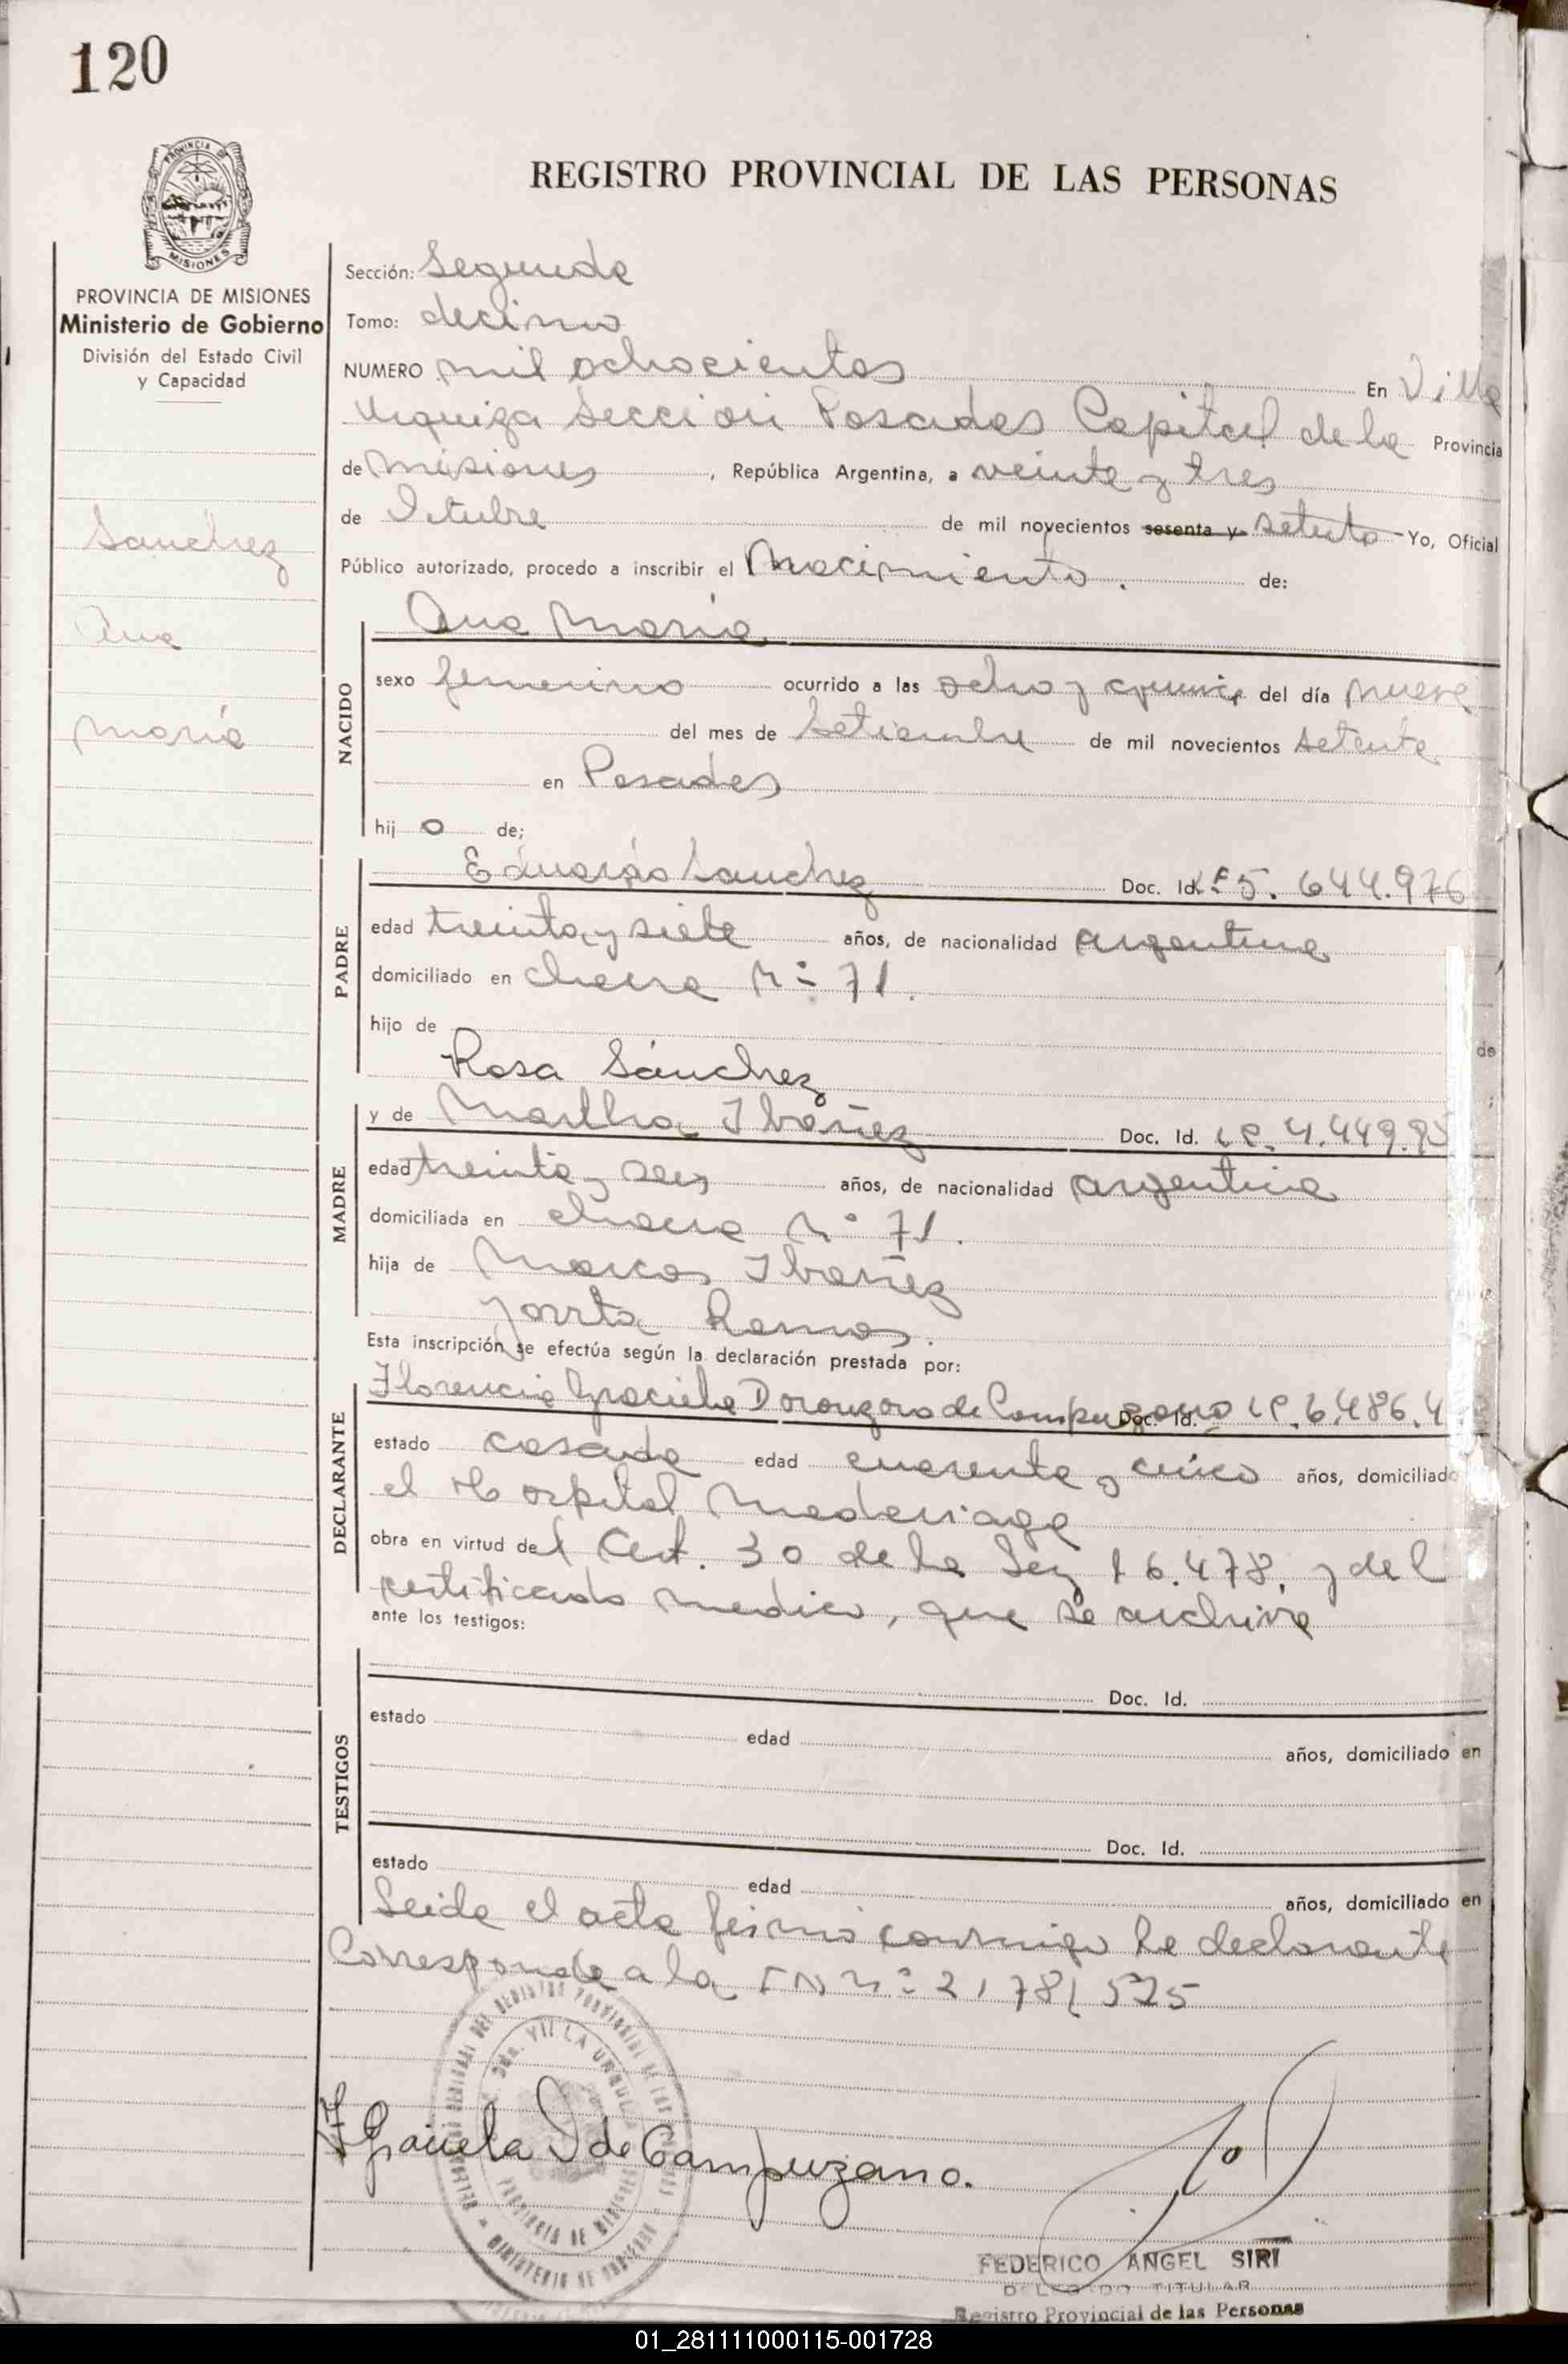 120
PROVINCIA DE MISIONES
REGISTRO PROVINCIAL DE LAS PERSONAS
PROVINCIA DE MISIONES
Ministerio de Gobierno
División del Estado Civil
y Capacidad
Sanchez
Ana
María
Sección: Segunda
Tomo: decimo
NUMERO mil ochocientos En Villa
Urquiza Sección Posadas Capital de la Provincia
de Misiones, República Argentina, a veinte y tres
de Octubre de mil novecientos sesenta y setenta Yo, Oficial
Público autorizado, procedo a inscribir el Nacimiento. de:
NACIDO
Ana María
sexo femenino ocurrido a las ocho y del día nueve
del mes de Setiembre de mil novecientos setenta
en Posadas
hij o de;
PADRE
Eduardo Sanchez Doc. Id. 5.644.976
edad treinta y siete años, de nacionalidad argentina
domiciliado en chacra Nº 71.
hijo de de
Rosa Sánchez
MADRE
y de Martha Ibañez Doc. Id. LC. 4.449.95
edad treinta y seis años, de nacionalidad argentina
domiciliada en chacra Nº 71.
hija de Marcos Ibañez
Ramos.
Esta inscripción se efectúa según la declaración prestada por:
DECLARANTE
Florencia Graciela Doronzoro de Campuzano Doc. Id. LC. 6.486.4
estado casada edad cuarenta y cinco años, domiciliado
el Hospital Madariaga
obra en virtud del Art. 30 de la Ley 16.478, y del
certificado medico, que se archiva
ante los testigos:
TESTIGOS
Doc. Id.
estado edad años, domiciliado en
Doc. Id.
estado edad años, domiciliado en
Leida el acta firmó conmigo la declarante
Corresponde a la Nº 21781525
F Graciela D de Campuzano.
FEDERICO ANGEL SIRI
DELEGADO TITULAR
Registro Provincial de las Personas
01_281111000115-001728